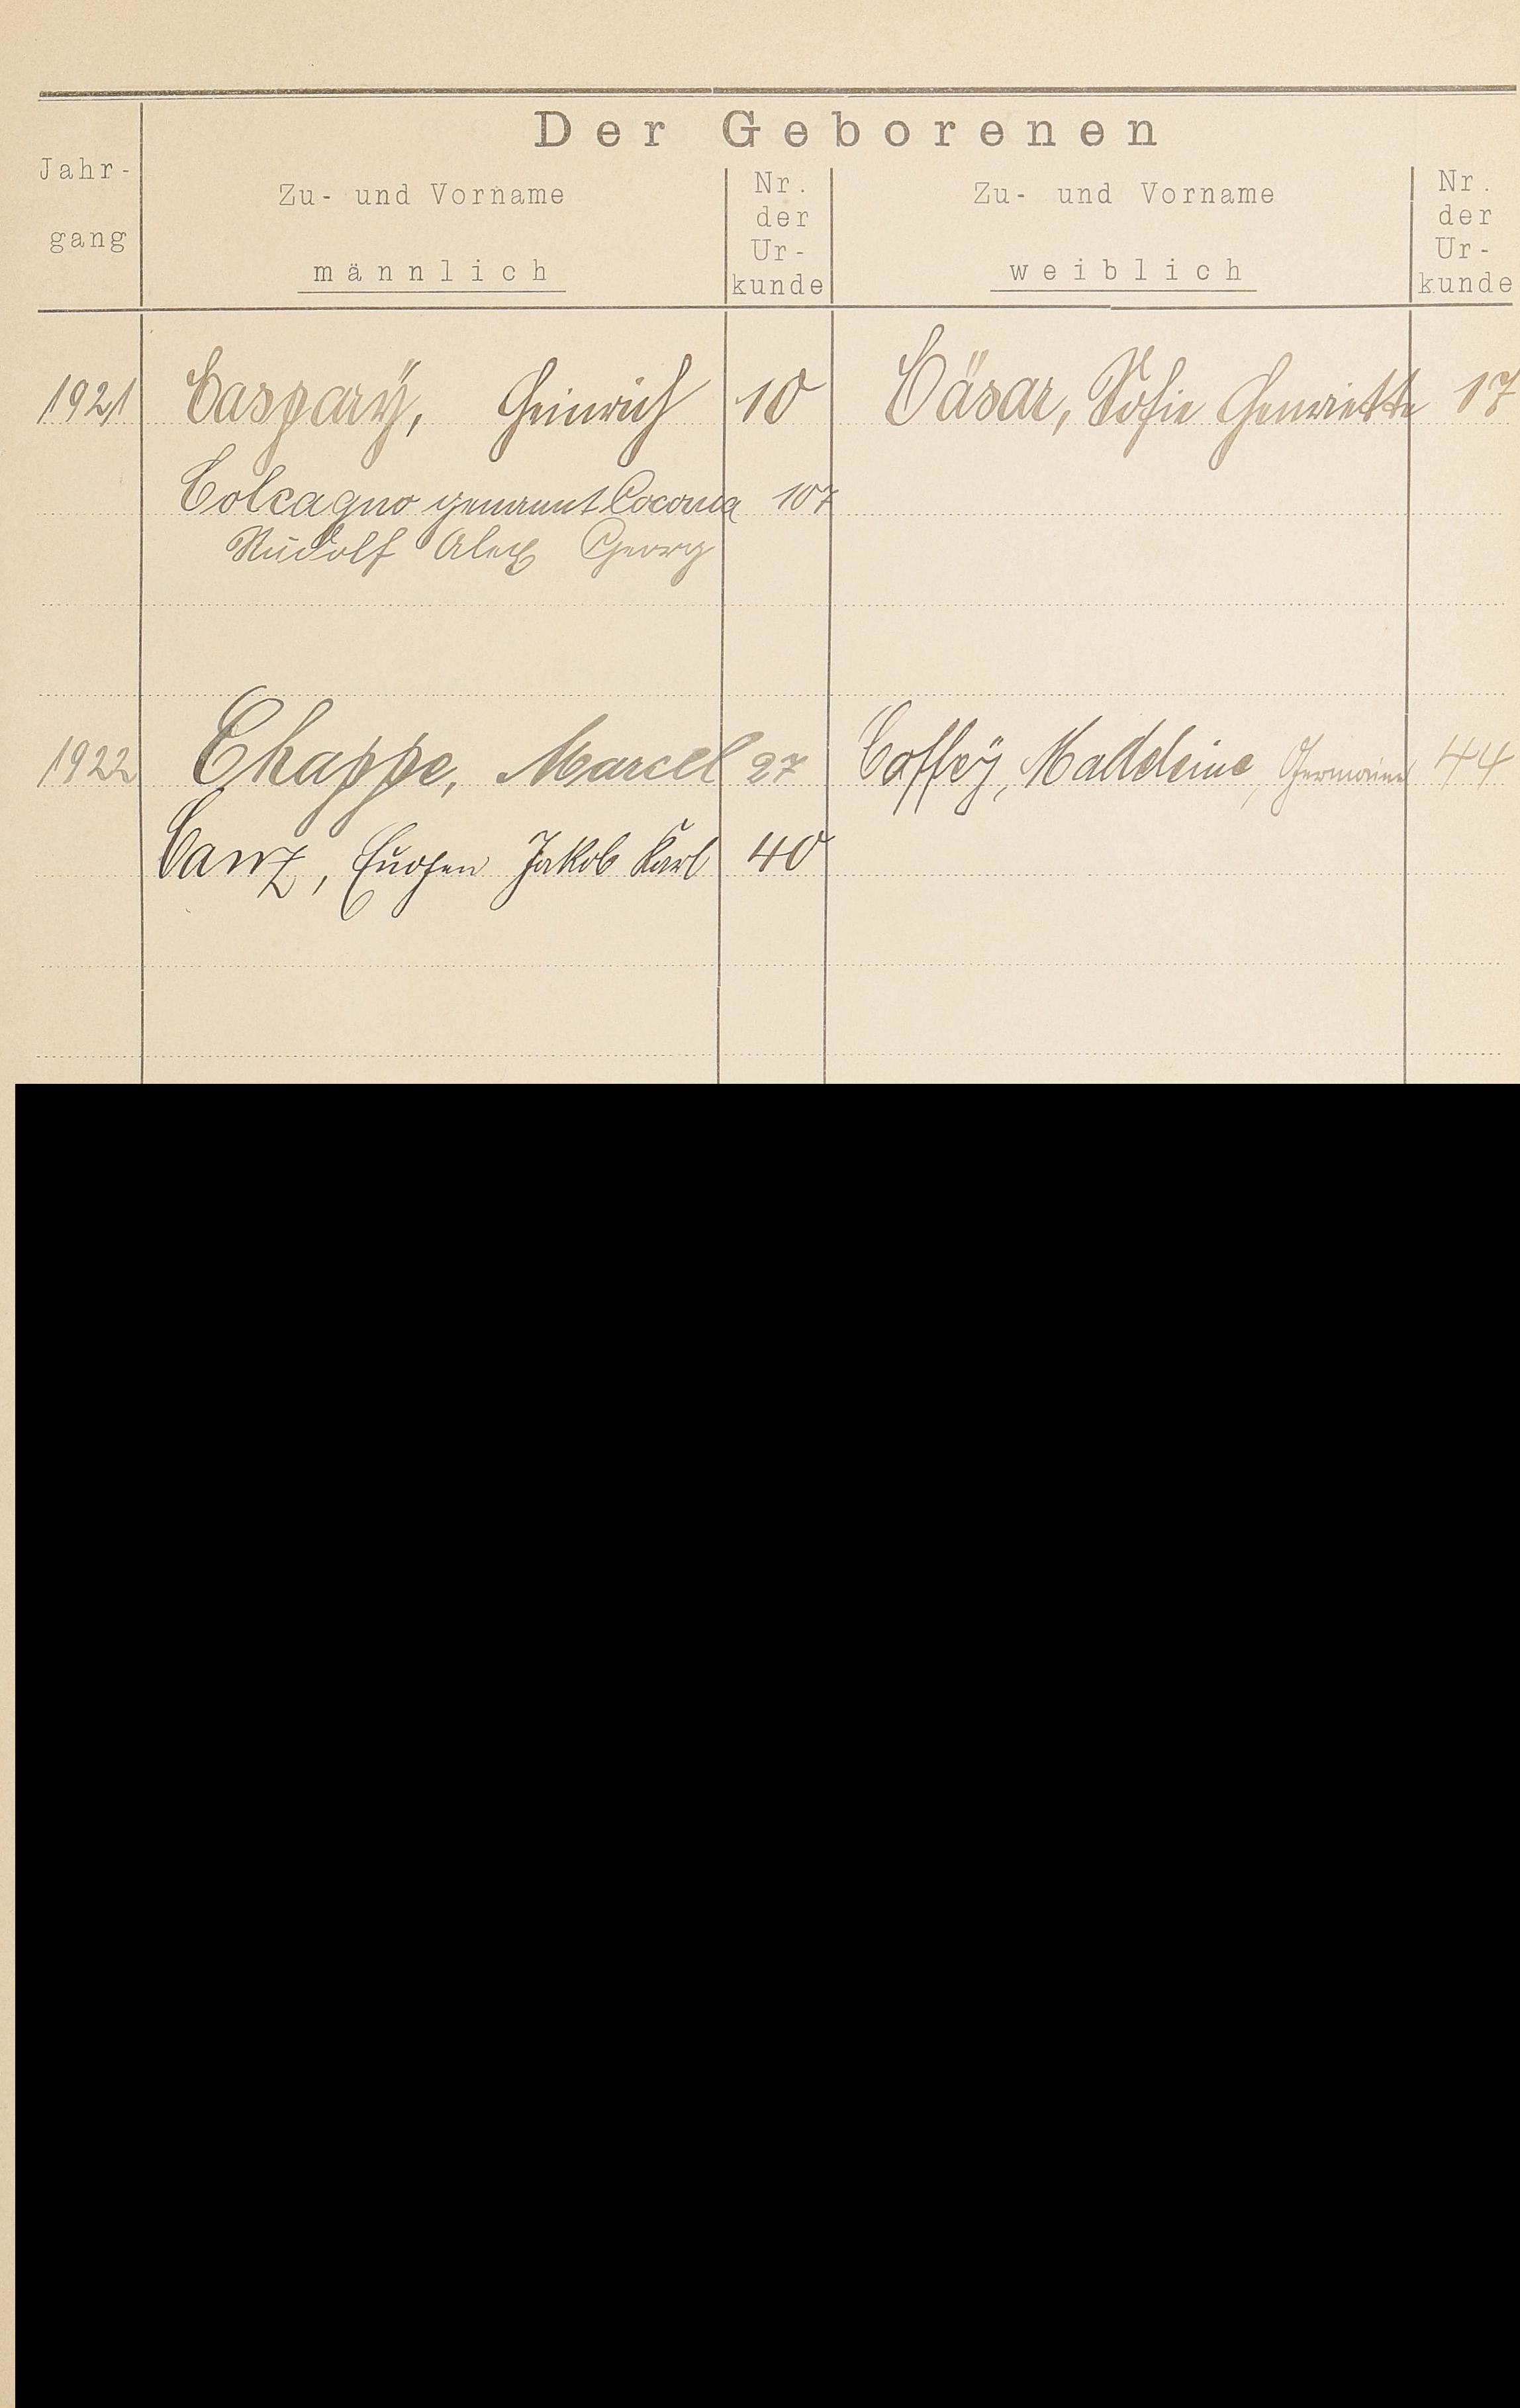 Der Geborenen
Jahr-
gang
Zu- und Vorname
männlich
Nr.
der
Ur-
kunde
Zu- und Vorname
weiblich
Nr.
der
Ur-
kunde
1921 Caspary, Heinrich 10 Cäsar, Sofie Henriette 17
Colcagno genannt 107
Rudolf Alex Georg
1922 Chappe, Marcel 27 Coffey, Madeleine, Germaine 44
Canz, Eugen Jakob Karl 40